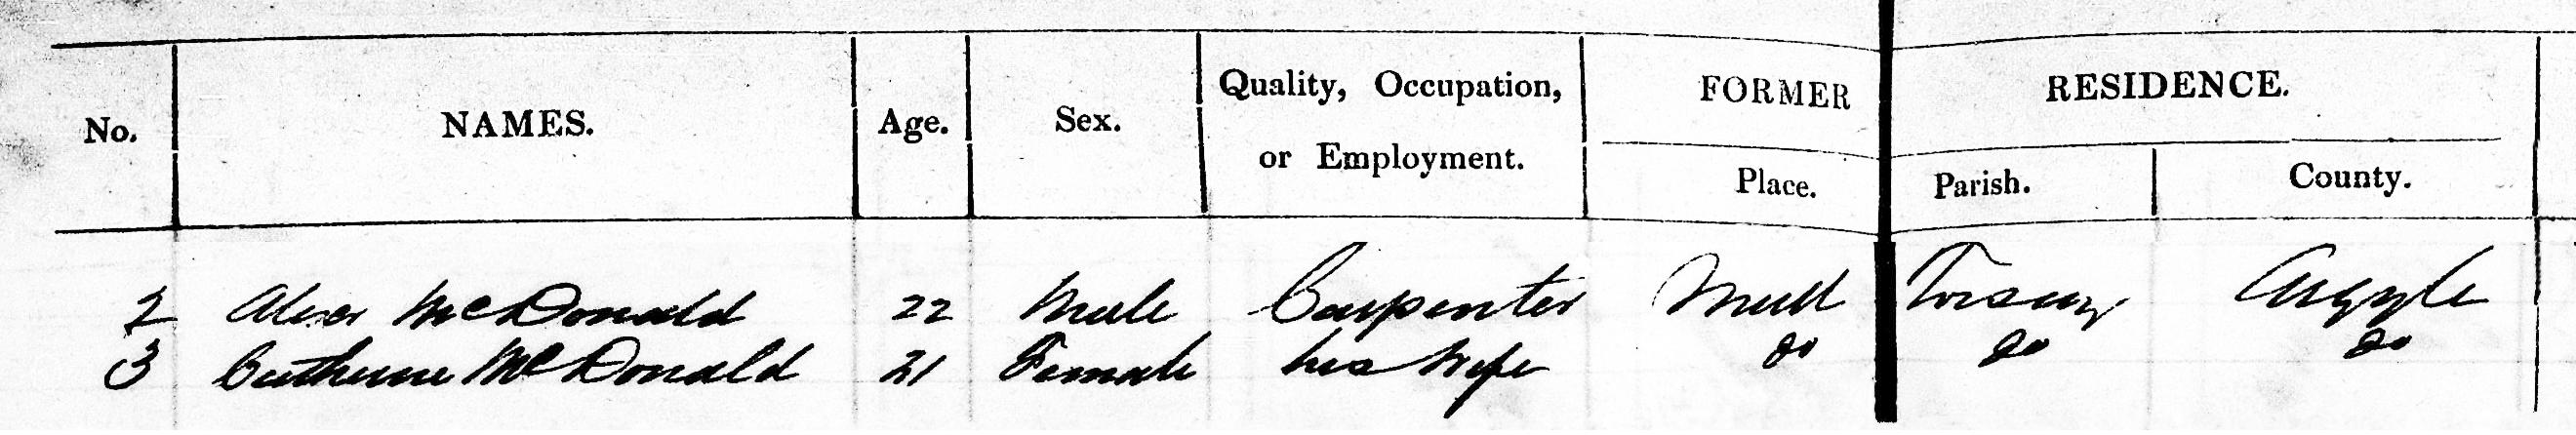 No. NAMES. Age. Sex. Quality, Occupation, or Employment. FORMER RESIDENCE.
Place. Parish. County.
2 Alexr McDonald 22 Male Carpenter Mull Torsay Argyle
3 Catherine McDonald 21 Female his Wife do do do